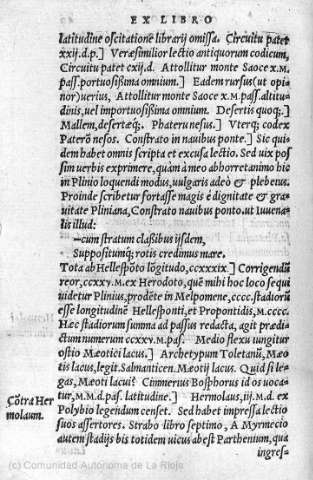 EX LIBRO
latitudine oscitatione librarij omissa. Circuitu patet
xxij.d.p.] Verisimilior lectio antiquorum codicum,
Circuitu patet cxij.d. Attollitur monte Saoce x.M.
pass. portuosissima omnium.] Eadem rursus (ut opi-
nor) uerius, Attollitur monte Saoce x.M.pass.altitu-
dinis, uel importuosissima omnium. Desertis quoq;.]
Mallem, desertæq́;. Phateru nesus.] Vterq; codex
Paterõ nesos. Constrato in nauibus ponte.] Sic qui-
dem habet omnis scripta et excusa lectio. Sed uix pos
sim uerbis exprimere, quàm à meo abhorret animo hic
in Plinio loquendi modus, uulgaris adeò & plebeus.
Proinde scribetur fortasse magis è dignitate & gra-
uitate Pliniana, Constrato nauibus ponto. ut Iuuena-
lis illud:
—cum stratum classibus ijsdem,
Suppositumq́; rotis credimus mare.
Tota ab Hellespõto lõgitudo, ccxxxix.] Corrigendũ
reor, ccxxv.M. ex Herodoto, quē mihi hoc loco sequi
uidetur Plinius, prodēte in Melpomene, cccc. stadiorū
esse longitudinē Hellesponti, et Propontidis, M.cccc.
Hæc stadiorum summa ad passus redacta, agit prædi-
ctum numerum ccxxv.M.pas. Medio flexu iungitur
ostio Mæotici lacus.] Archetypum Toletanũ, Mæo
tis lacus, legit. Salmanticen. Mæotij lacus. Quid si le-
gas, Mæoti lacui? Cimmerus Bosphorus id os uoca-
tur, M.M.d.pas. latitudine.] Hermolaus, iij.M.d. ex
Cõtra Her
molaum.
Polybio legendum censet. Sed habet impressa lectio
suos assertores. Strabo libro septimo, A Myrmecio
autem stadijs bis totidem uicus abest Parthenium, qua
ingres-
(c) Comunidad Autónoma de La Rioja